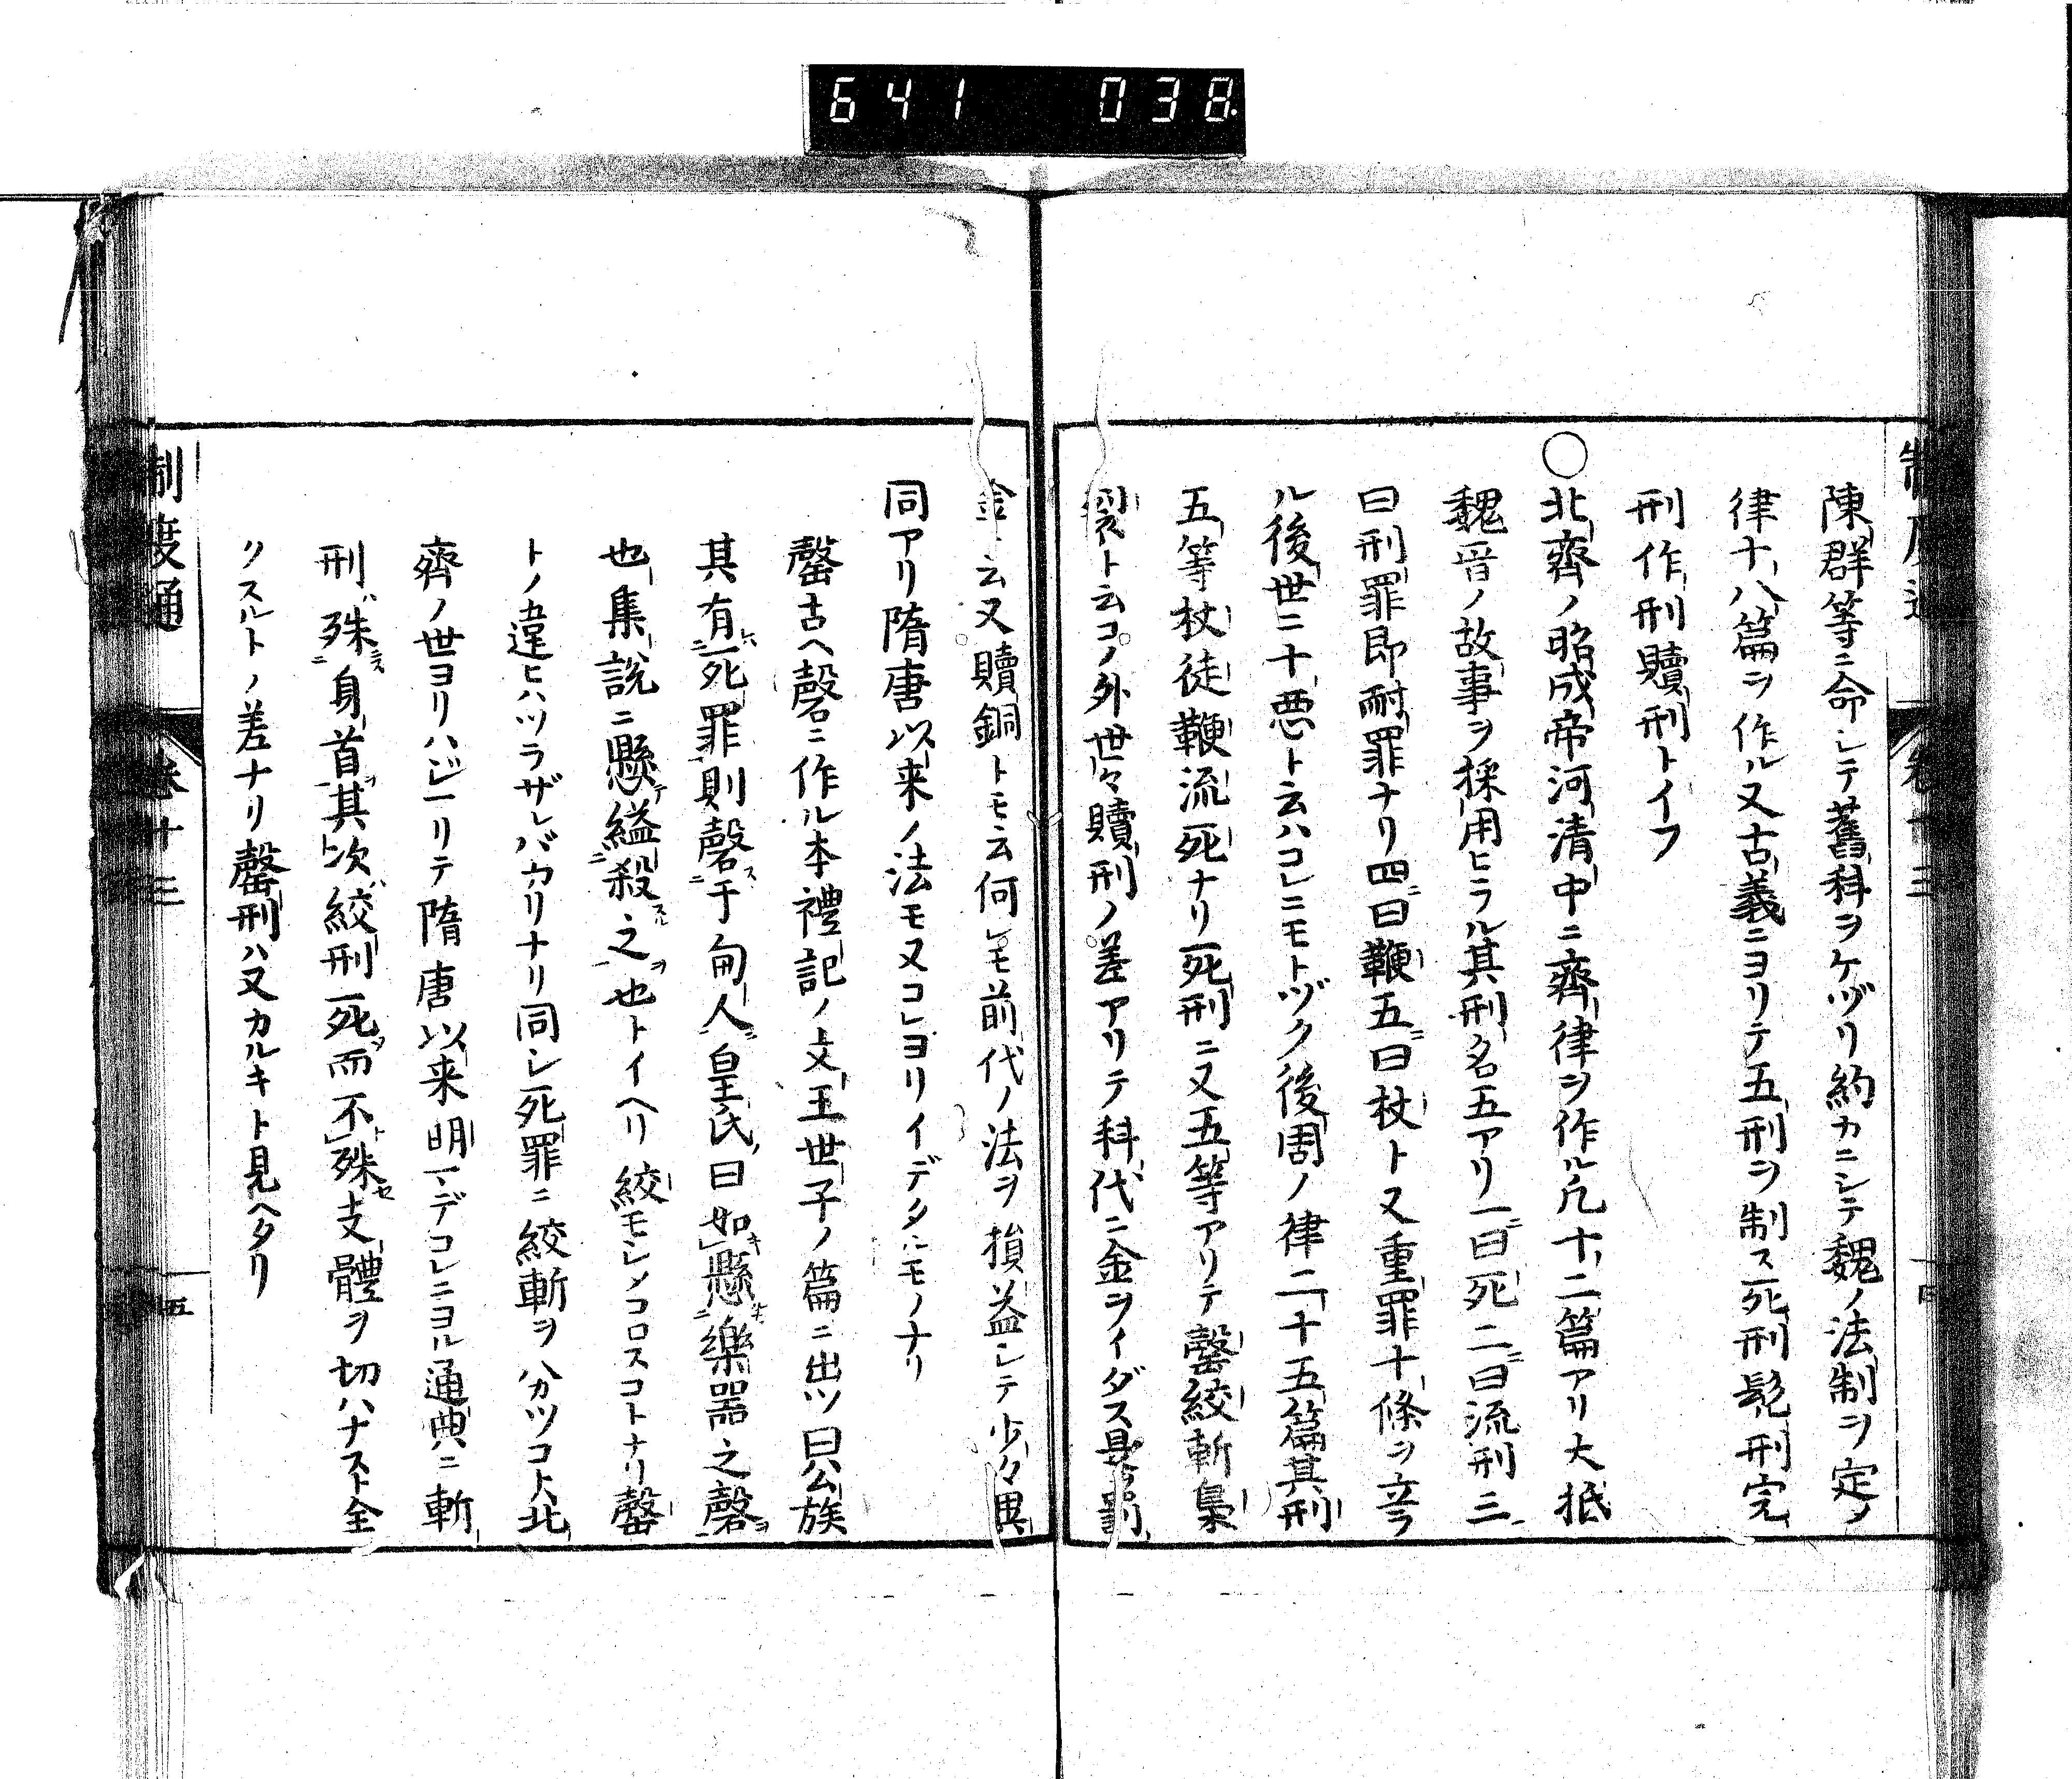 641 038
陳群等ニ命シテ舊科ヲケヅリ約カニシテ魏ノ法制ヲ定ノ
律十八篇ヲ作ル又古義ニヨリテ五刑ヲ制ス死刑髡刑完
刑作刑贖刑トイフ
○北齊ノ昭成帝河清中ニ齊律ヲ作ル凡十二篇アリ大抵
魏晋ノ故事ヲ採用ヒラル其刑名五アリ一曰死二曰流刑三
曰刑罪即耐罪ナリ四曰鞭五曰杖ト又重罪十條ヲ立ラ
ル後世ニ十悪ト云ハコレニモトヅク後周ノ律二十五篇其刑
五等杖徒鞭流死ナリ死刑ニ又五等アリテ罄絞斬梟
裂ト云コノ外世々贖刑ノ差アリテ科代ニ金ヲイダス是罰
金ト云又贖銅トモ云何レモ前代ノ法ヲ損益シテ少々異
同アリ隋唐以来ノ法モ又コレヨリイデタルモノナリ
罄古ヘ磬ニ作ル本禮記ノ文王世子ノ篇ニ出ツ曰公族
其有死罪則磬于甸人皇氏曰如懸樂器之磬
也集説ニ懸縊殺之也トイヘリ絞モシメコロスコトナリ罄
トノ違ヒハツラザレバカリナリ同シ死罪ニ絞斬ヲハカツコトハ北
齊ノ世ヨリハジーリテ隋唐以来明マデコレニヨル通典ニ斬
刑ハ殊身首其次絞刑死而不殊支體ヲ切ハナスト全
クスルトノ差ナリ罄刑ハ又カルキト見ヘタリ
制度通
卷十三
五